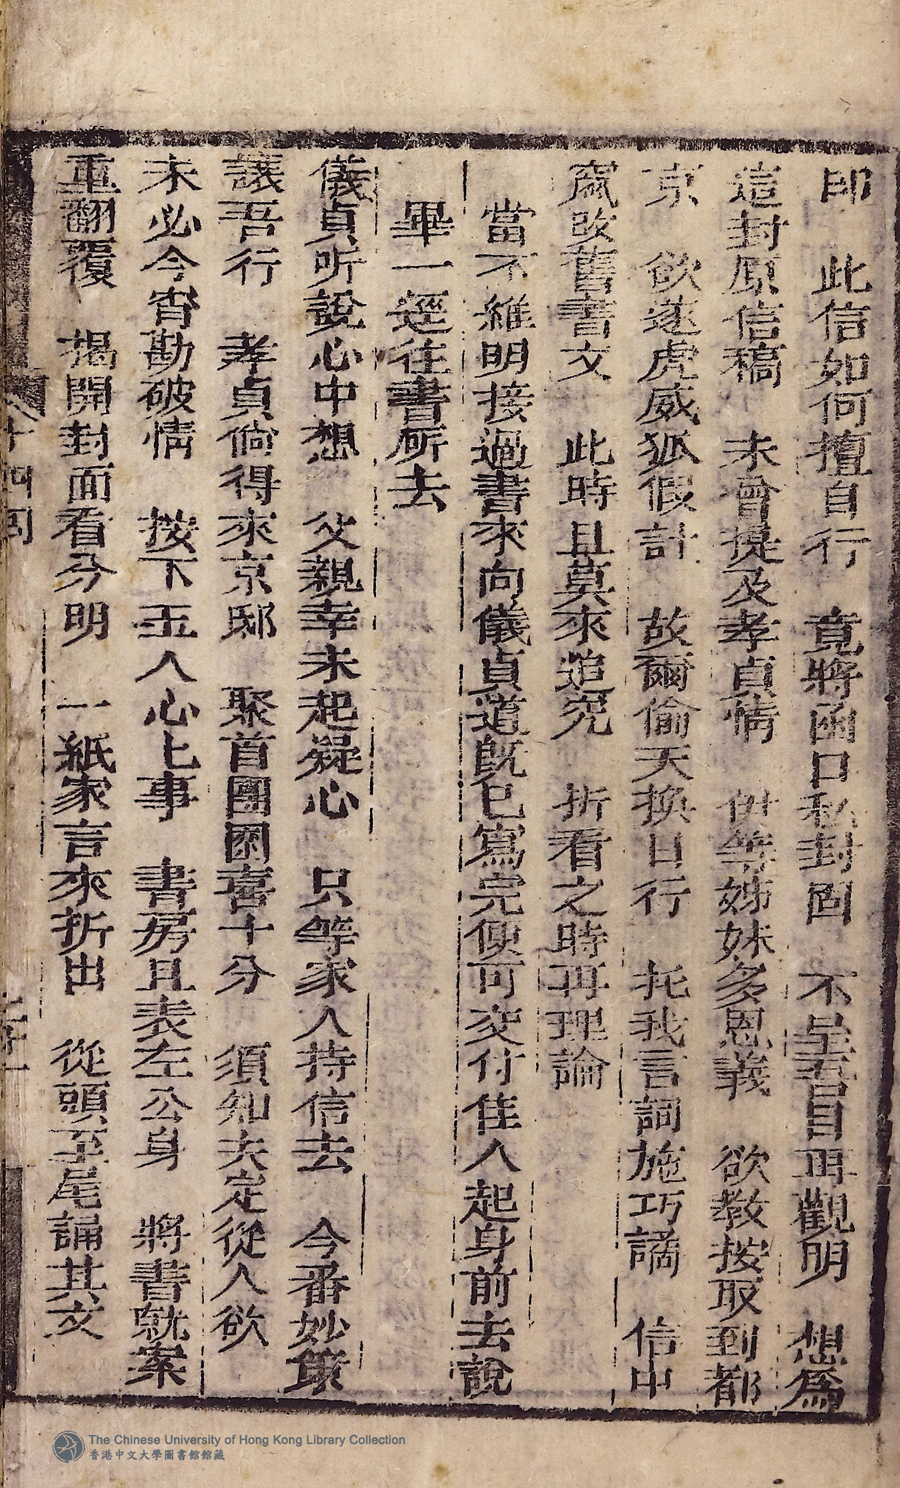 即　此信如何擅自行　竟將函口私封固　不呈吾目再觀明　想為
這封原信稿　未會提及孝貞情　伊等姊妹多恩義　欲教按取到都
京　欲逐虎威狐假計　故爾偷天換日行　托我言詞施巧譎　信中
竄改舊書文　此時且莫來追究　折看之時再理論
當不維明接過書來向儀貞道既已寫完便可交付佳人起身前去說
畢一逕往書所去
儀貞所說心中想　父親幸未起疑心　只等家人持信去　今番妙策
議吾行　孝貞倘得來京邸　聚首團圞喜十分　須知夫定從人欲
未必今宵勘破情　按下玉人心上事　書房且表左公身　將書就案
重翻覆　揭開封面看分明　一紙家言來折出　從頭至尾誦其文
十四回
The Chinese University of Hong Kong Library Collection
香港中文大學圖書館館藏